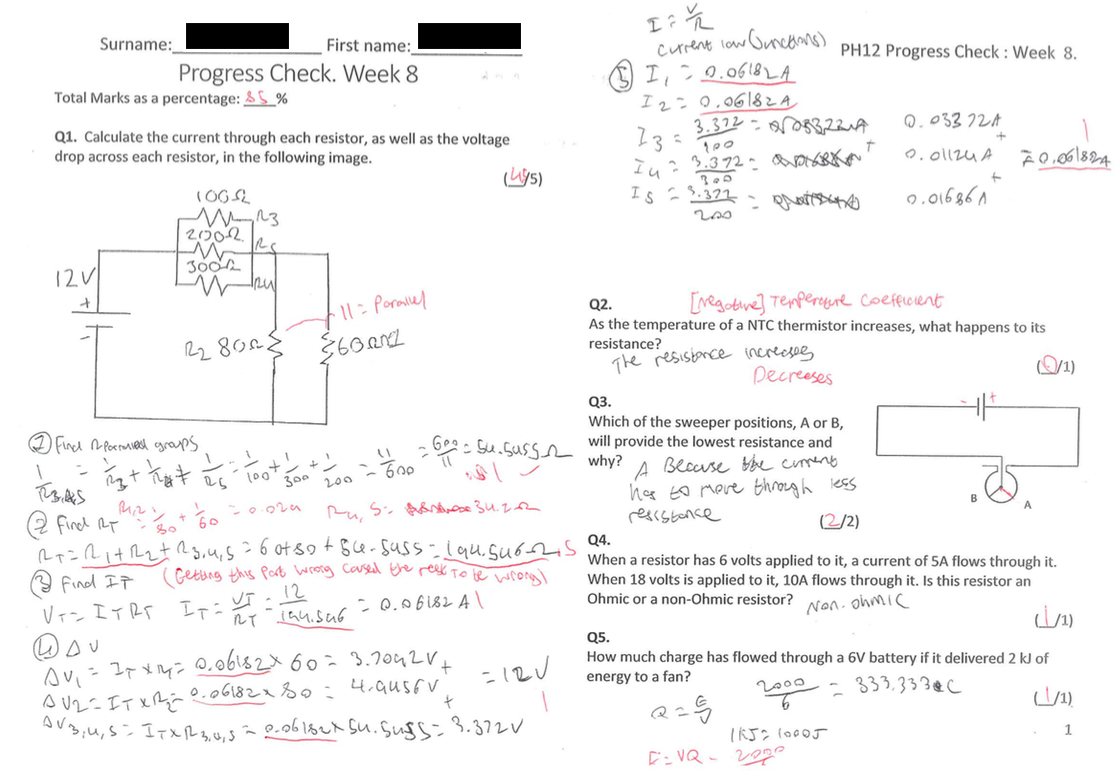 Surname: First name:
Progress Check. Week 8
Total Marks as a percentage: 85 %
Q1. Calculate the current through each resistor, as well as the voltage
drop across each resistor, in the following image.
(4/5)
100Ω
R3
200Ω
R5
300Ω
R4
12V
+
-
R2 80Ω
60Ω
11 = Parallel
Find groups
1/R3,4,5 = 1/R3 + 1/R4 + 1/R5 = 1/100 + 1/300 + 1/200 = 11/600 = 600/11 = 54.5455Ω
② Find RT 1/80 + 1/60 = 0.029 34.2Ω
RT = R1 + R2 + R3,4,5 = 60+80+54.5455 = 194.546Ω
③ Find IT (Getting this part wrong caused the rest to be wrong)
VT = IT RT IT = VT/RT = 12/194.546 = 0.06182 A 1
④ ΔV
ΔV1 = IT x R1 = 0.06182 x 60 = 3.7092V +
ΔV2 = IT x R2 = 0.06182 x 80 = 4.9456V + = 12V
1
ΔV3,4,5 = IT x R3,4,5 = 0.06182 x 54.5455 = 3.372V
I = V/R
Current law (Junctions)
PH12 Progress Check : Week 8.
⑤ I1 = 0.06182A
I2 = 0.06182A
I3 = 3.372/100 = 0.03372A +
I4 = 3.372/300 = 0.01124A + = 0.06182A
1
I5 = 3.372/200 = 0.01686A
Q2. [Negative] Temperature Coefficient
As the temperature of a NTC thermistor increases, what happens to its
resistance?
The resistance increases
Decreases
(0/1)
Q3.
Which of the sweeper positions, A or B,
will provide the lowest resistance and
why? A Because the current
has to move through less
resistance
(2/2)
- +
B A
Q4.
When a resistor has 6 volts applied to it, a current of 5A flows through it.
When 18 volts is applied to it, 10A flows through it. Is this resistor an
Ohmic or a non-Ohmic resistor? Non-ohmic
(1/1)
Q5.
How much charge has flowed through a 6V battery if it delivered 2 kJ of
energy to a fan?
2000/6 = 333.333 C
(1/1)
Q = E/V
1KJ = 1000J
E = VQ - 2000
1